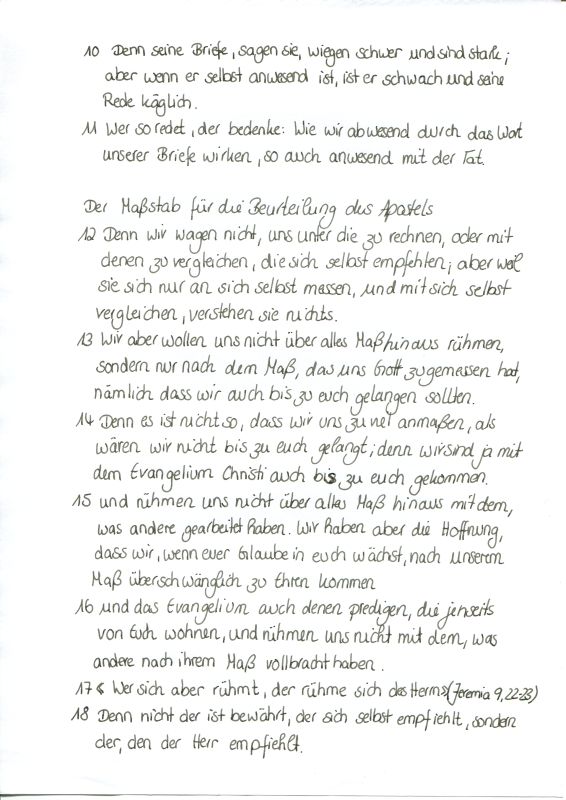 10 Denn seine Briefe, sagen sie, wiegen schwer und sind stark;
aber wenn er selbst anwesend ist, ist er schwach und seine
Rede kläglich.
11 Wer so redet, der bedenke: Wie wir abwesend durch das Wort
unserer Briefe wirken, so auch anwesend mit der Tat.
Der Maßstab für die Beurteilung des Apostels
12 Denn wir wagen nicht, uns unter die zu rechnen, oder mit
denen zu vergleichen, die sich selbst empfehlen; aber weil
sie sich nur an sich selbst messen, und mit sich selbst
vergleichen, verstehen sie nichts.
13 Wir aber wollen uns nicht über alles Maß hinaus rühmen,
sondern nur nach dem Maß, das uns Gott zugemessen hat,
nämlich dass wir auch bis zu euch gelangen sollten.
14 Denn es ist nicht so, dass wir uns zu viel anmaßen, als
wären wir nicht bis zu euch gelangt; denn wir sind ja mit
dem Evangelium Christi auch bis zu euch gekommen.
15 und rühmen uns nicht über alles Maß hinaus mit dem,
was andere gearbeitet haben. Wir haben aber die Hoffnung,
dass wir, wenn euer Glaube in euch wächst, nach unserem
Maß überschwänglich zu Ehren kommen
16 und das Evangelium auch denen predigen, die jenseits
von Euch wohnen, und rühmen uns nicht mit dem, was
andere nach ihrem Maß vollbracht haben.
17 Wer sich aber rühmt, der rühme sich des Herrns (Jeremia 9,22-23)
18 Denn nicht der ist bewährt, der sich selbst empfiehlt, sondern
der, den der Herr empfiehlt.